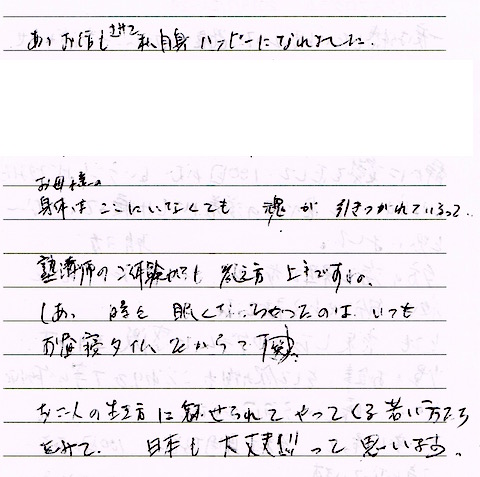 お話もさせて私自身ハッピーになれました。
お母様の
身体はここにいなくても 魂が 引きつがれているって、
塾講師のご経験からも 教え方 上手ですね。
しあ、 時を 眠くなっちゃったのは、いつも
お昼寝タイムだからって
お二人の生き方に魅せられてやってくる若い方たち
をみて、日本も大丈夫!!って思います。